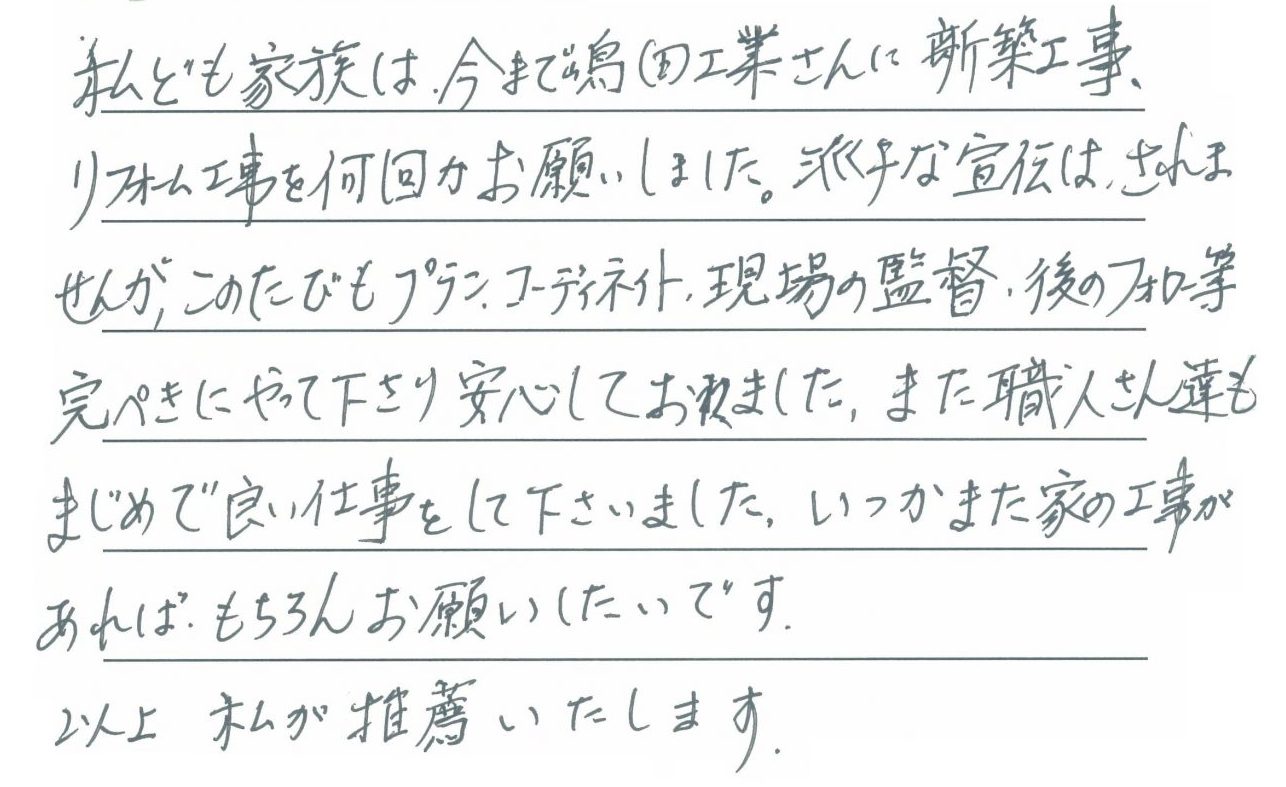 私ども家族は、今まで嶋田工業さんに新築工事、
リフォーム工事を何回かお願いしました。派手な宣伝は、されま
せんが、このたびもプラン、コーディネイト、現場の監督、後のフォロー等
完ぺきにやって下さり安心しておれました、また職人さん達も
まじめで良い仕事をして下さいました、いつかまた家の工事が
あれば、もちろんお願いしたいです.
以上 私が推薦いたします.